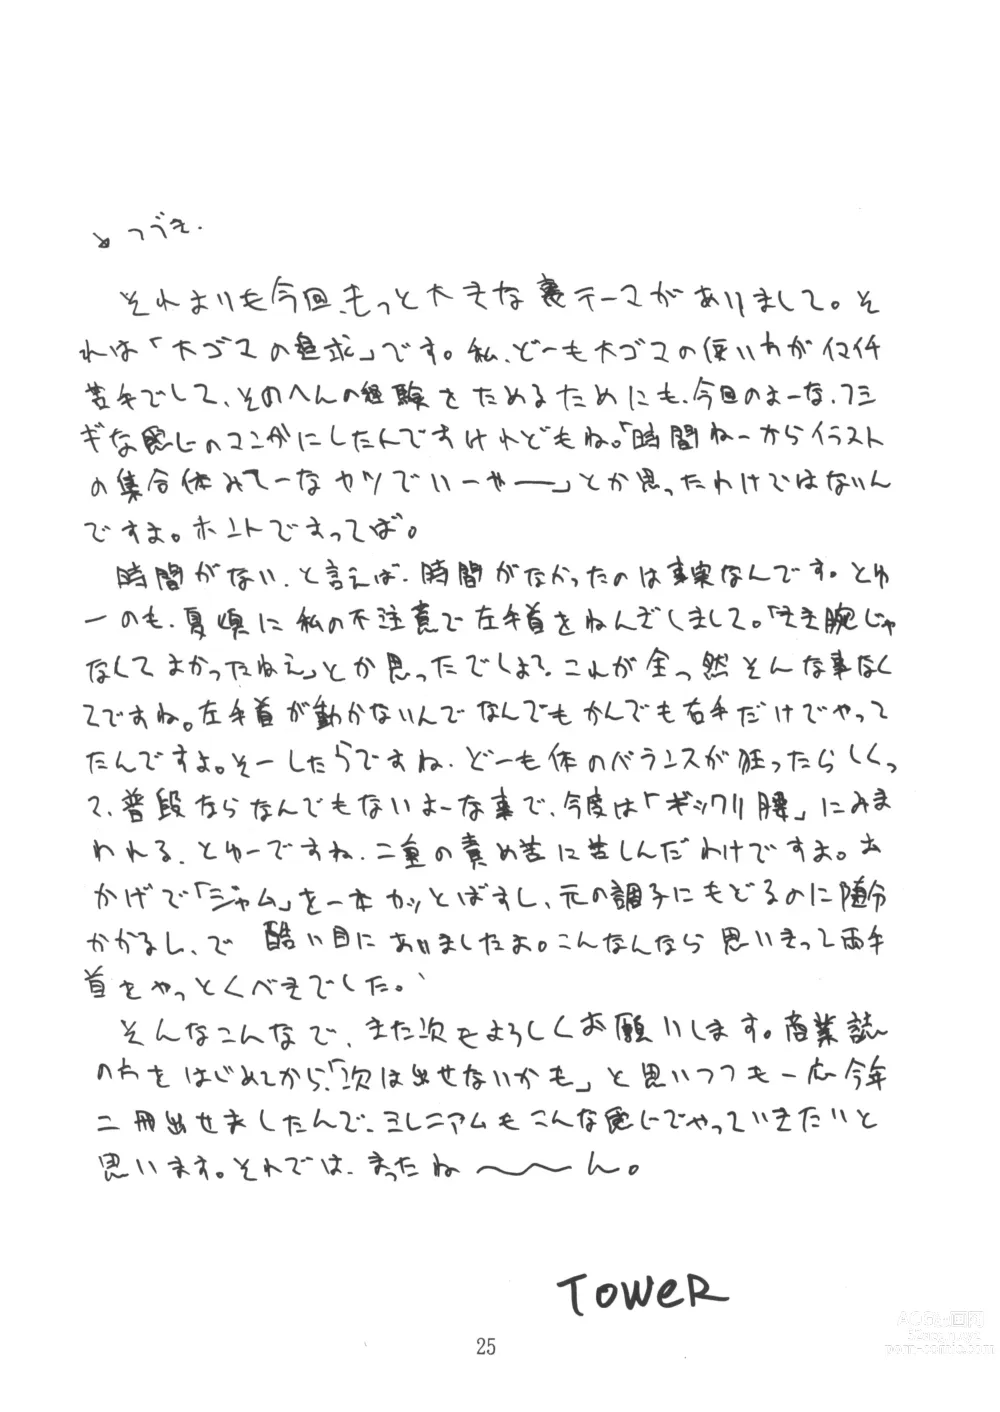 ↘ つづき.
それよりも今回、もっと大きな裏テーマがありまして。そ
れは「大ゴマの追求」です。私、どーも大ゴマの使い方がイマイチ
苦手でして、そのへんの経験をためるためにも、今回のよーな、フシ
ギな感じのマンガにしたんですけれどもね。「時間ねーからイラスト
の集合体みてーなヤツでいーやー」とか思ったわけではないん
ですよ。ホントですってば。
時間がない、と言えば、時間がなかったのは事実なんです。とゆ
ーのも、夏頃に私の不注意で左手首をねんざしまして。「きき腕じゃ
なくてよかったねえ」とか思ったでしょ?これが全っ然そんな事なく
てですね。左手首が動かないんでなんでもかんでも右手だけでやって
たんですよ。そーしたらですね、どーも体のバランスが狂ったらしくっ
て、普段ならなんでもないよーな事で、今度は「ギックリ腰」にみま
われる、とゆーですね、二重の責め苦に苦しんだわけですよ。お
かげで「ジャム」を一本カッとばすし、元の調子にもどるのに随分
かかるし、で 酷い目にあいましたよ。こんなんなら思いきって両手
首をやっとくべきでした。
そんなこんなで、また次もよろしくお願いします。商業誌
の方をはじめてから、「次は出せないかも」と思いつつも一応今年
二冊出せましたんで、ミレニアムもこんな感じでやっていきたいと
思います。それでは、まったね〜〜ん。
TOWER
25
porn-comic.com